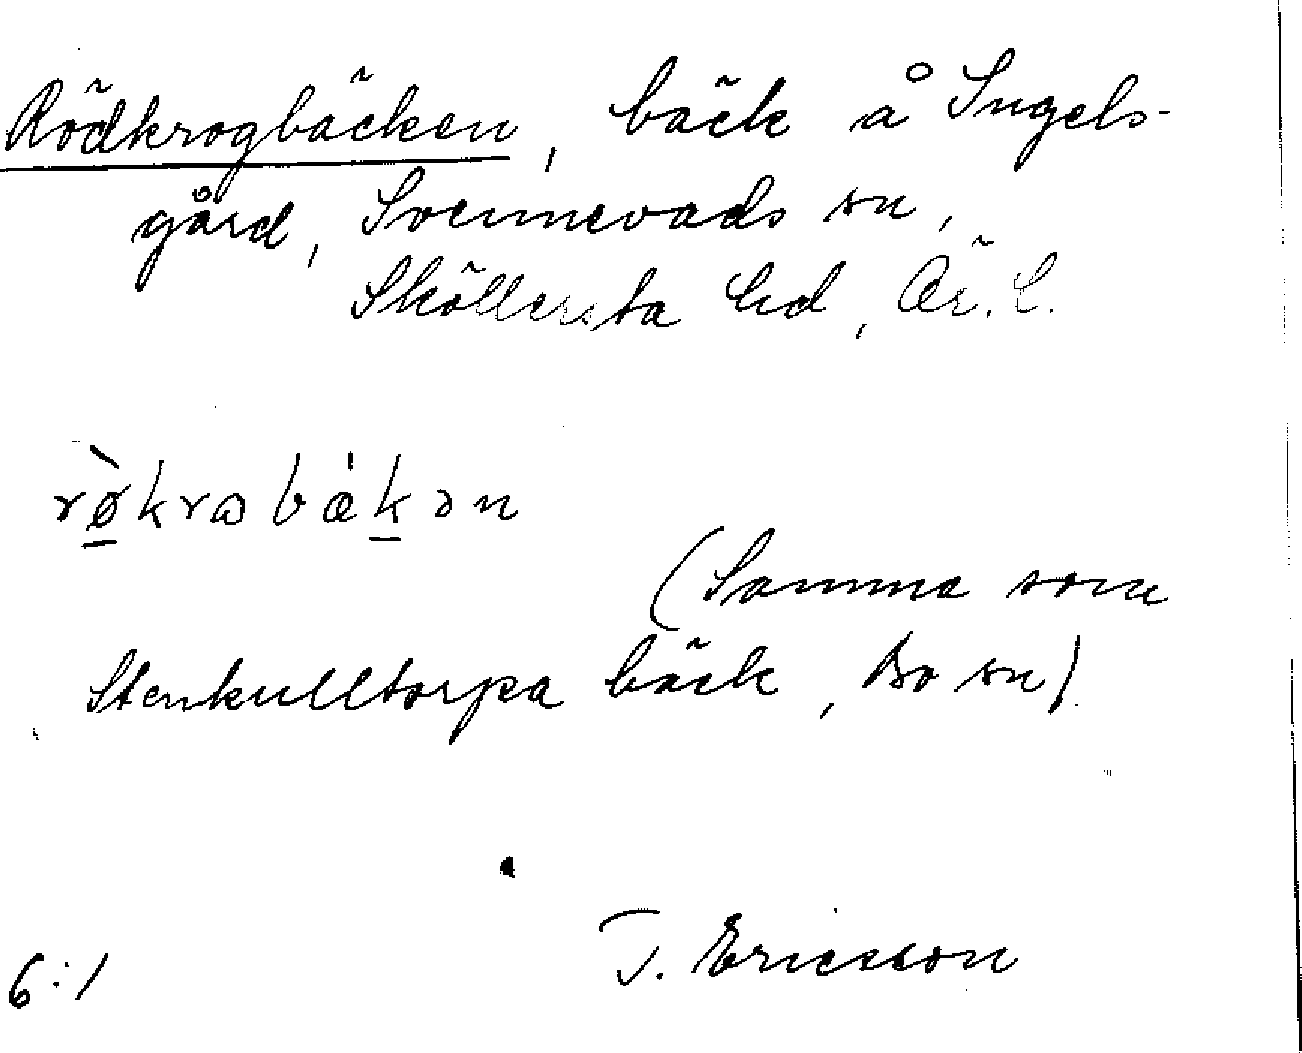 Rödkrogbäcken, bäck å Ingels-
gård, Svennevads sn,
Sköllersta hd, Ör. l.
rø̀krɷbækən
(Samma som
Stenkulltorpa bäck, Bo sn)
T. Ericsson
6:1